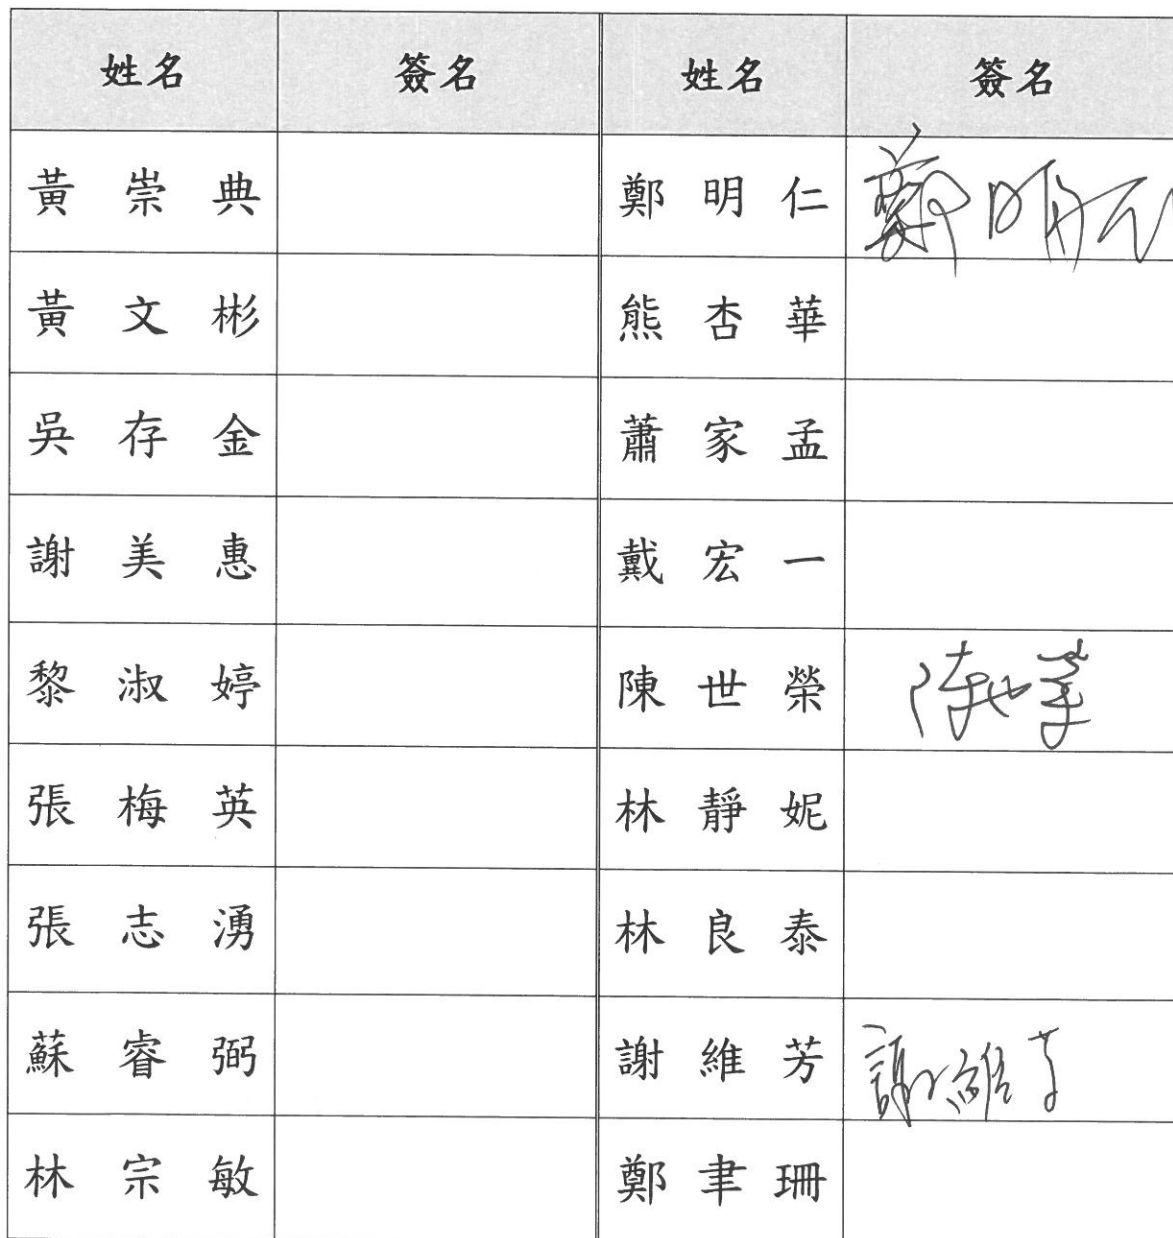 姓名 簽名 姓名 簽名
黃崇典 鄭明仁 鄭明仁
黃文彬 熊杏華
吳存金 蕭家孟
謝美惠 戴宏一
黎淑婷 陳世榮 陳世榮
張梅英 林靜妮
張志湧 林良泰
蘇睿弼 謝維芳 謝維芳
林宗敏 鄭聿珊